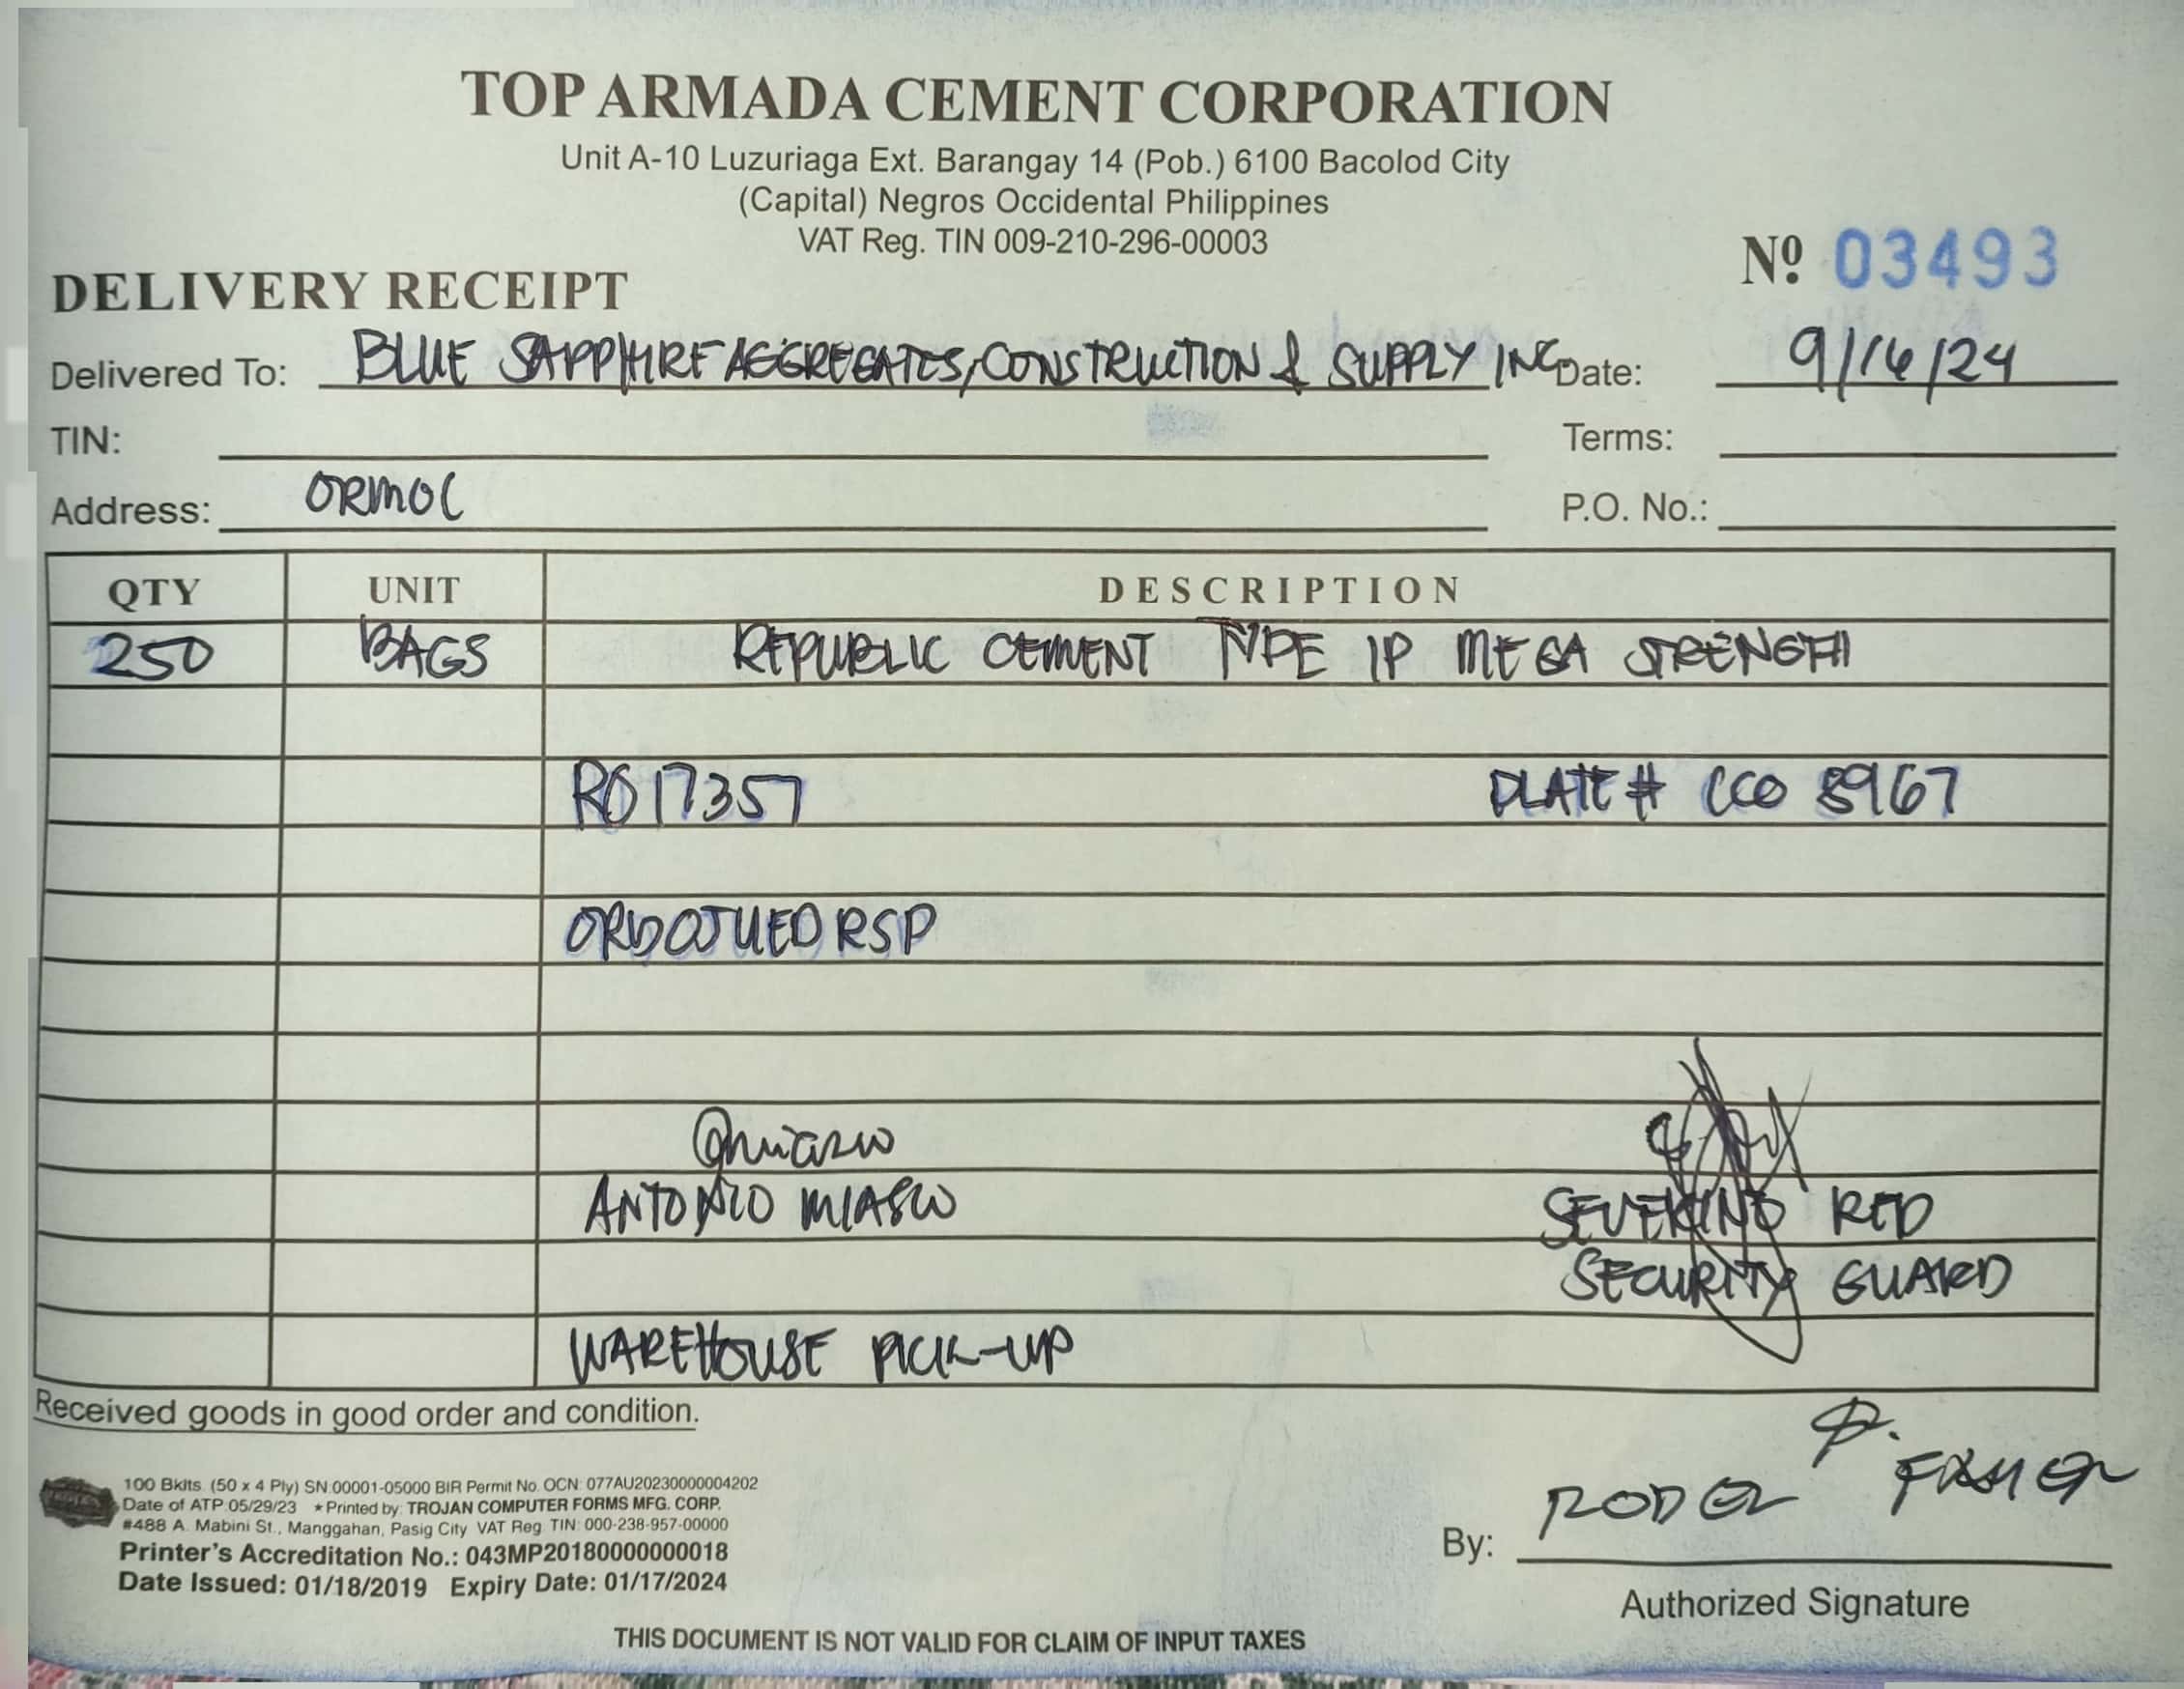 TOP ARMADA CEMENT CORPORATION
Unit A-10 Luzuriaga Ext. Barangay 14 (Pob.) 6100 Bacolod City
(Capital) Negros Occidental Philippines
VAT Reg. TIN 009-210-296-00003
Nº 03493
DELIVERY RECEIPT
Delivered To: BLUE SAPPHIRE AGGREGATES, CONSTRUCTION & SUPPLY INC Date: 9/16/24
TIN: Terms:
Address: ORMOC P.O. No.:
QTY UNIT DESCRIPTION
250 BAGS REPUBLIC CEMENT TYPE 1P MEGA STRENGTH
RO17357 PLATE # CCO 8967
ANTONIO SEVERINO RED
SECURITY GUARD
WAREHOUSE PICK-UP
Received goods in good order and condition.
100 Bklts. (50 x 4 Ply) SN:00001-05000 BIR Permit No. OCN: 077AU20230000004202
Date of ATP 05/29/23 ★ Printed by: TROJAN COMPUTER FORMS MFG. CORP.
#488 A. Mabini St., Manggahan, Pasig City VAT Reg. TIN: 000-238-957-00000
Printer's Accreditation No.: 043MP20180000000018
Date Issued: 01/18/2019 Expiry Date: 01/17/2024
By: RODEL
Authorized Signature
THIS DOCUMENT IS NOT VALID FOR CLAIM OF INPUT TAXES